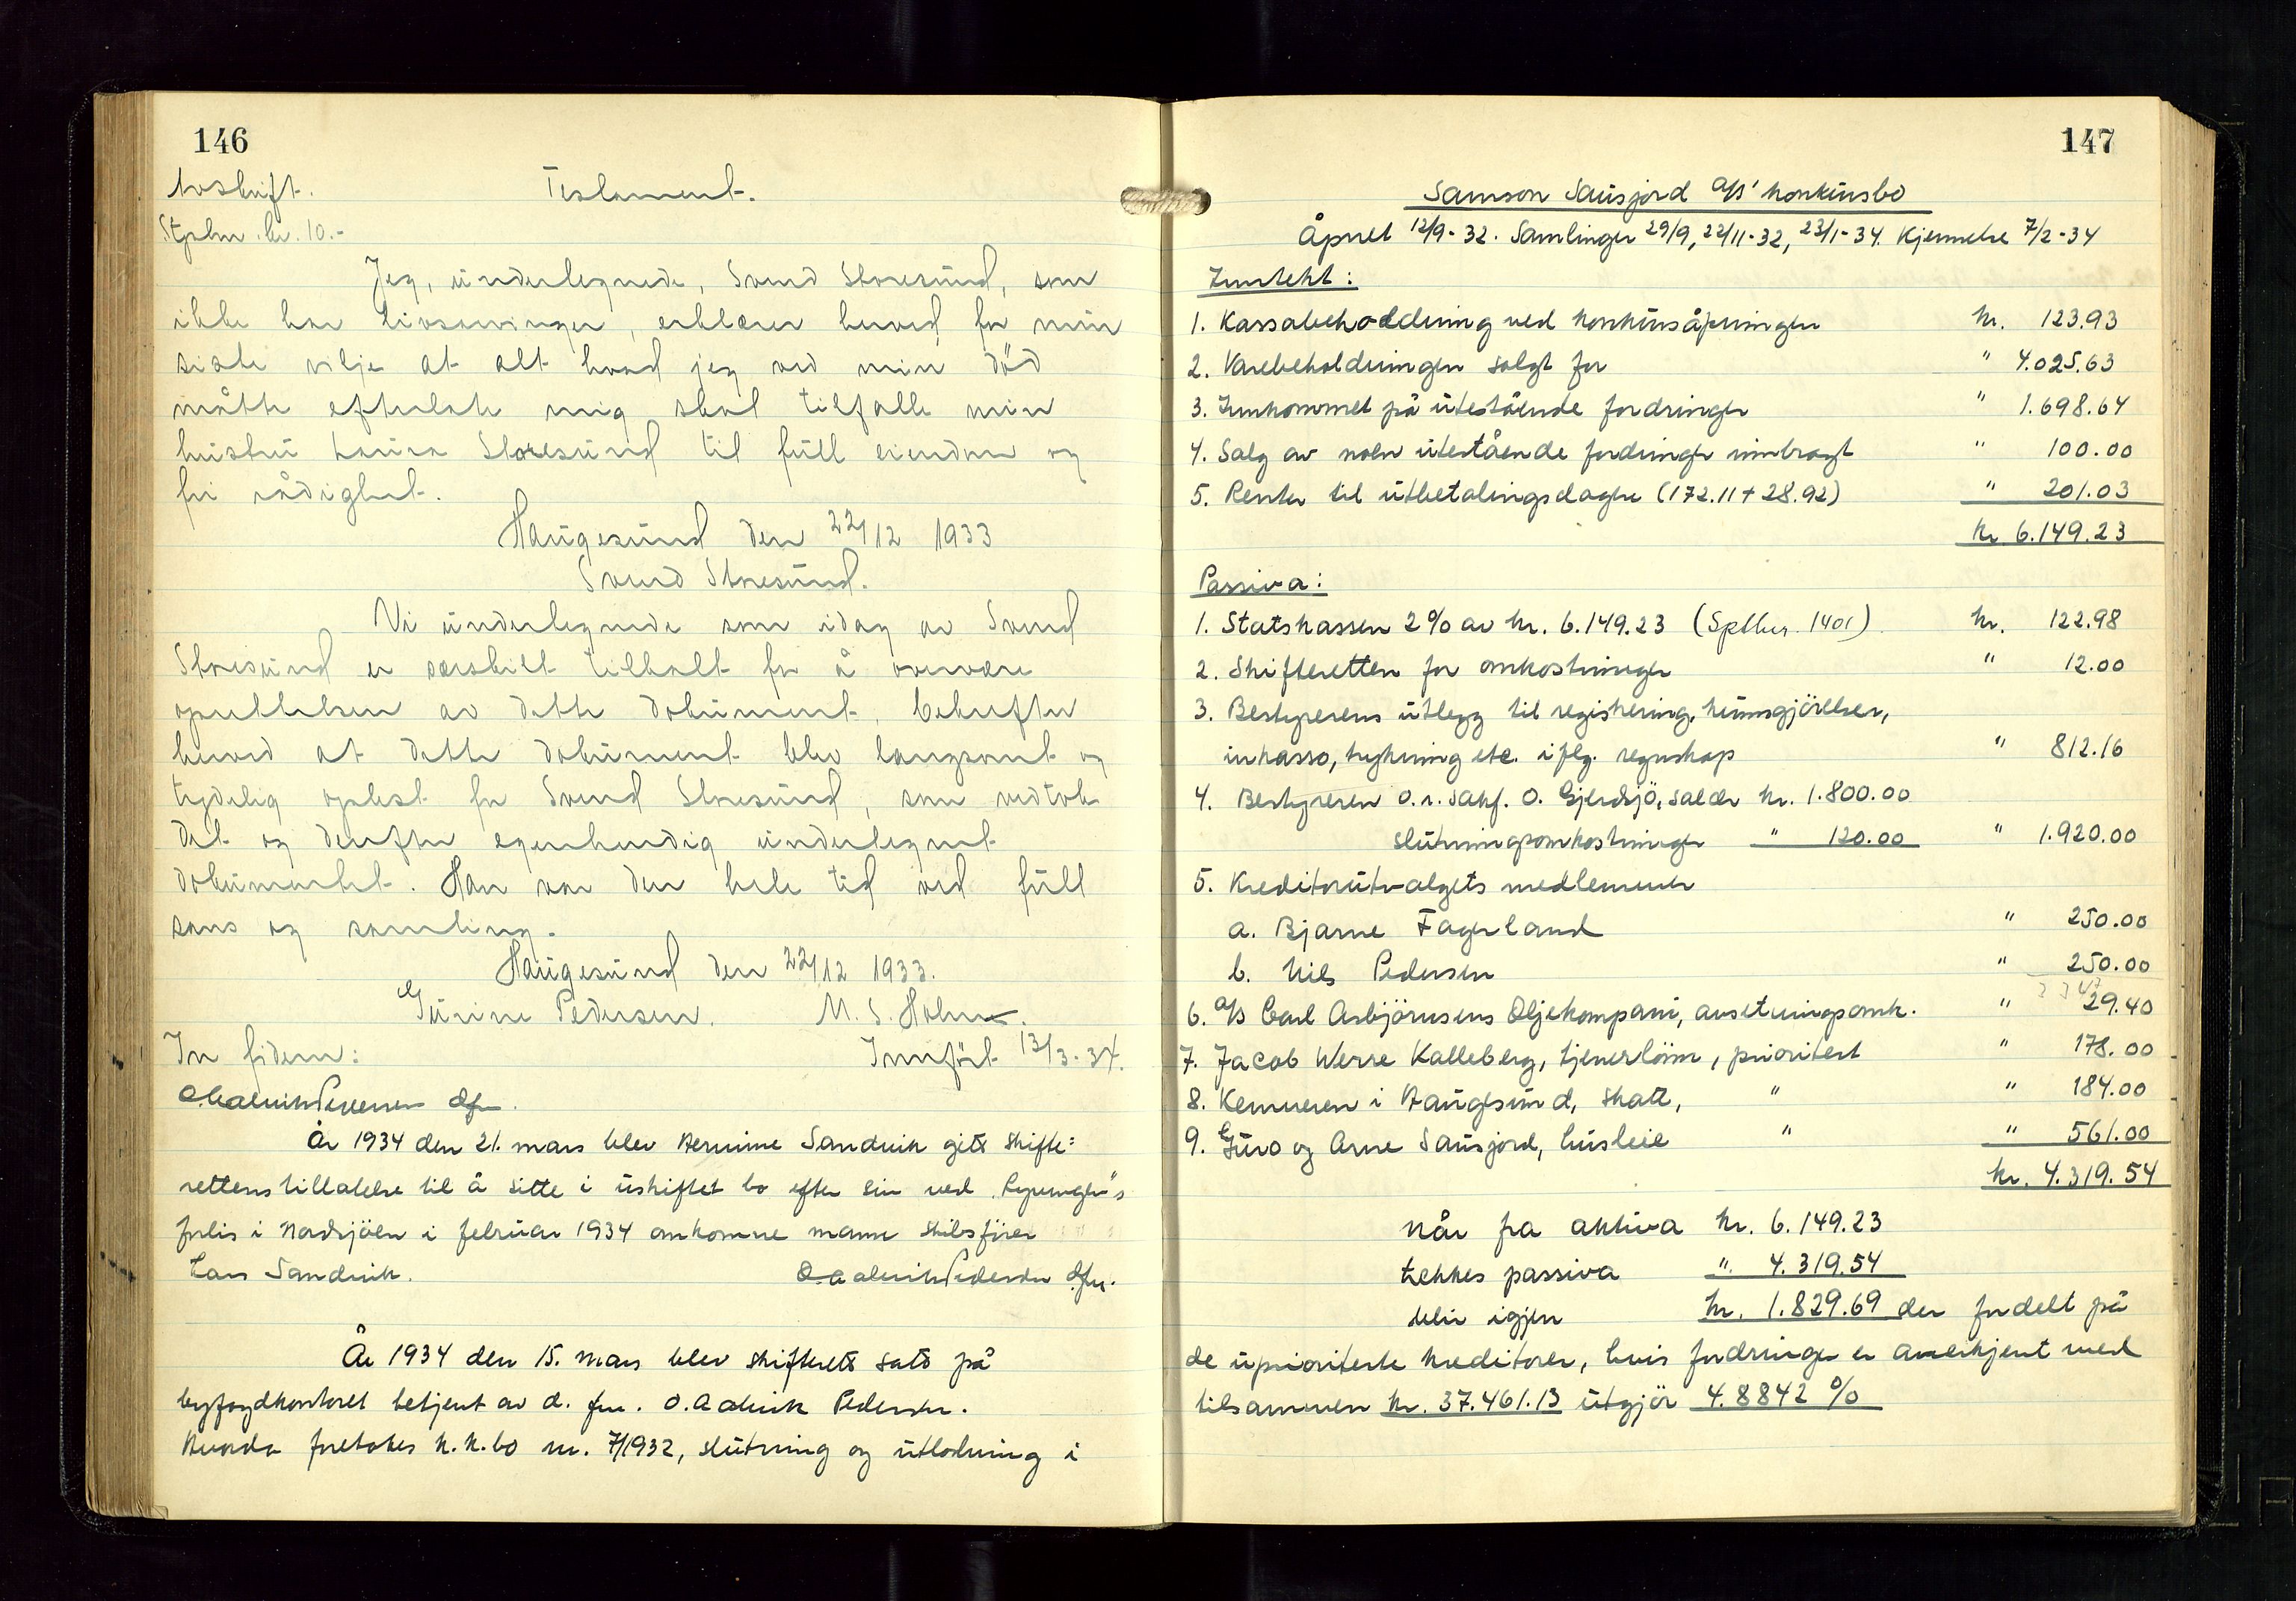 146
Avskrift. Testament.
Stplm. kr. 10.-
Jeg, underlegnede, Svend Storesund, som
ikke har livsarvinger, erklærer herved for min
siste vilje at alt hvad jeg ved min död
måtte efterlate mig skal tilfalle min
hustru Laura Storesund til full eiendom og
fri rådighet.
Haugesund den 22/12 1933
Svend Storesund.
Vi underlegnede som idag av Svend
Storesund er særskilt tilkalt for å overvære
oprettelsen av dette dokument, bekrefter
herved at dette dokument blev langsomt og
tydelig oplest for Svend Storesund, som vedtok
det og derefter egenhendig underlegnet
dokumentet. Han var den hele tid ved full
sans og samling.
Haugesund den 22/12 1933.
Gurine Pedersen. M. S. Holm.
In fidem: Innfört 13/3-34.
O. Aadnik Pedersen dfm.
År 1934 den 21. mars blev Hermine Sandvik gitt skifte=
rettens tillatelse til å sitte i uskiftet bo efter sin ved "s
forlis i Nordsjöen i februar 1934 omkomne mann skibsförer
Lars Sandvik. O. Aadnik Pedersen dfm.
År 1934 den 15. mars blev skifterett satt på
byfogdkontoret betjent av d. fm. O. Aadnik Pedersen.
Hvorda foretokes k.k.bo nr. 7/1932, slutning og utlodning i
147
Samson Sausjord A/S' konkursbo
Åpnet 12/9-32. Samlinger 29/9, 22/11-32, 23/1-34. Kjennelse 7/2-34
Inntekt:
1. Kassabeholdning ved konkursåpningen kr. 123.93
2. Varebeholdningen solgt for " 4.025.63
3. Innkommet på utestående fordringer " 1.698.64
4. Salg av noen utestående fordringer innbragt " 100.00
5. Renter til utbetalingsdagen (172.11 + 28.92) " 201.03
kr 6.149.23
Passiva:
1. Statskassen 2% av kr. 6.149.23 kr. 122.98
2. Skifteretten for omkostninger " 12.00
3. Bestyrerens utlegg til registrering, kunngjörelser,
inkasso, trykning etc. iflg. regnskap " 812.16
4. Bestyreren o.r. sakf. O. Gjerdsjö, salær kr. 1.800.00
slutningsomkostninger " 120.00 " 1.920.00
5. Kreditorutvalgets medlemmer
a. Bjarne Fagerland " 250.00
b. Nils Pedersen " 250.00
6. A/S Carl Asbjörnsens Oljekompani, avsetningsomk. " 29.40
7. Jacob Werre Kalleberg, tjenerlönn, prioritert " 178.00
8. Kemneren i Haugesund, skatt, " " 184.00
9. Guro og Arne Sausjord, husleie " " 561.00
kr. 4.319.54
Når fra aktiva kr. 6.149.23
trekkes passiva " 4.319.54
blir igjen kr. 1.829.69 der fordelt på
de uprioriterte kreditorer, hvis fordringer er anerkjent med
tilsammen kr. 37.461.13 utgjör 4.8842 %